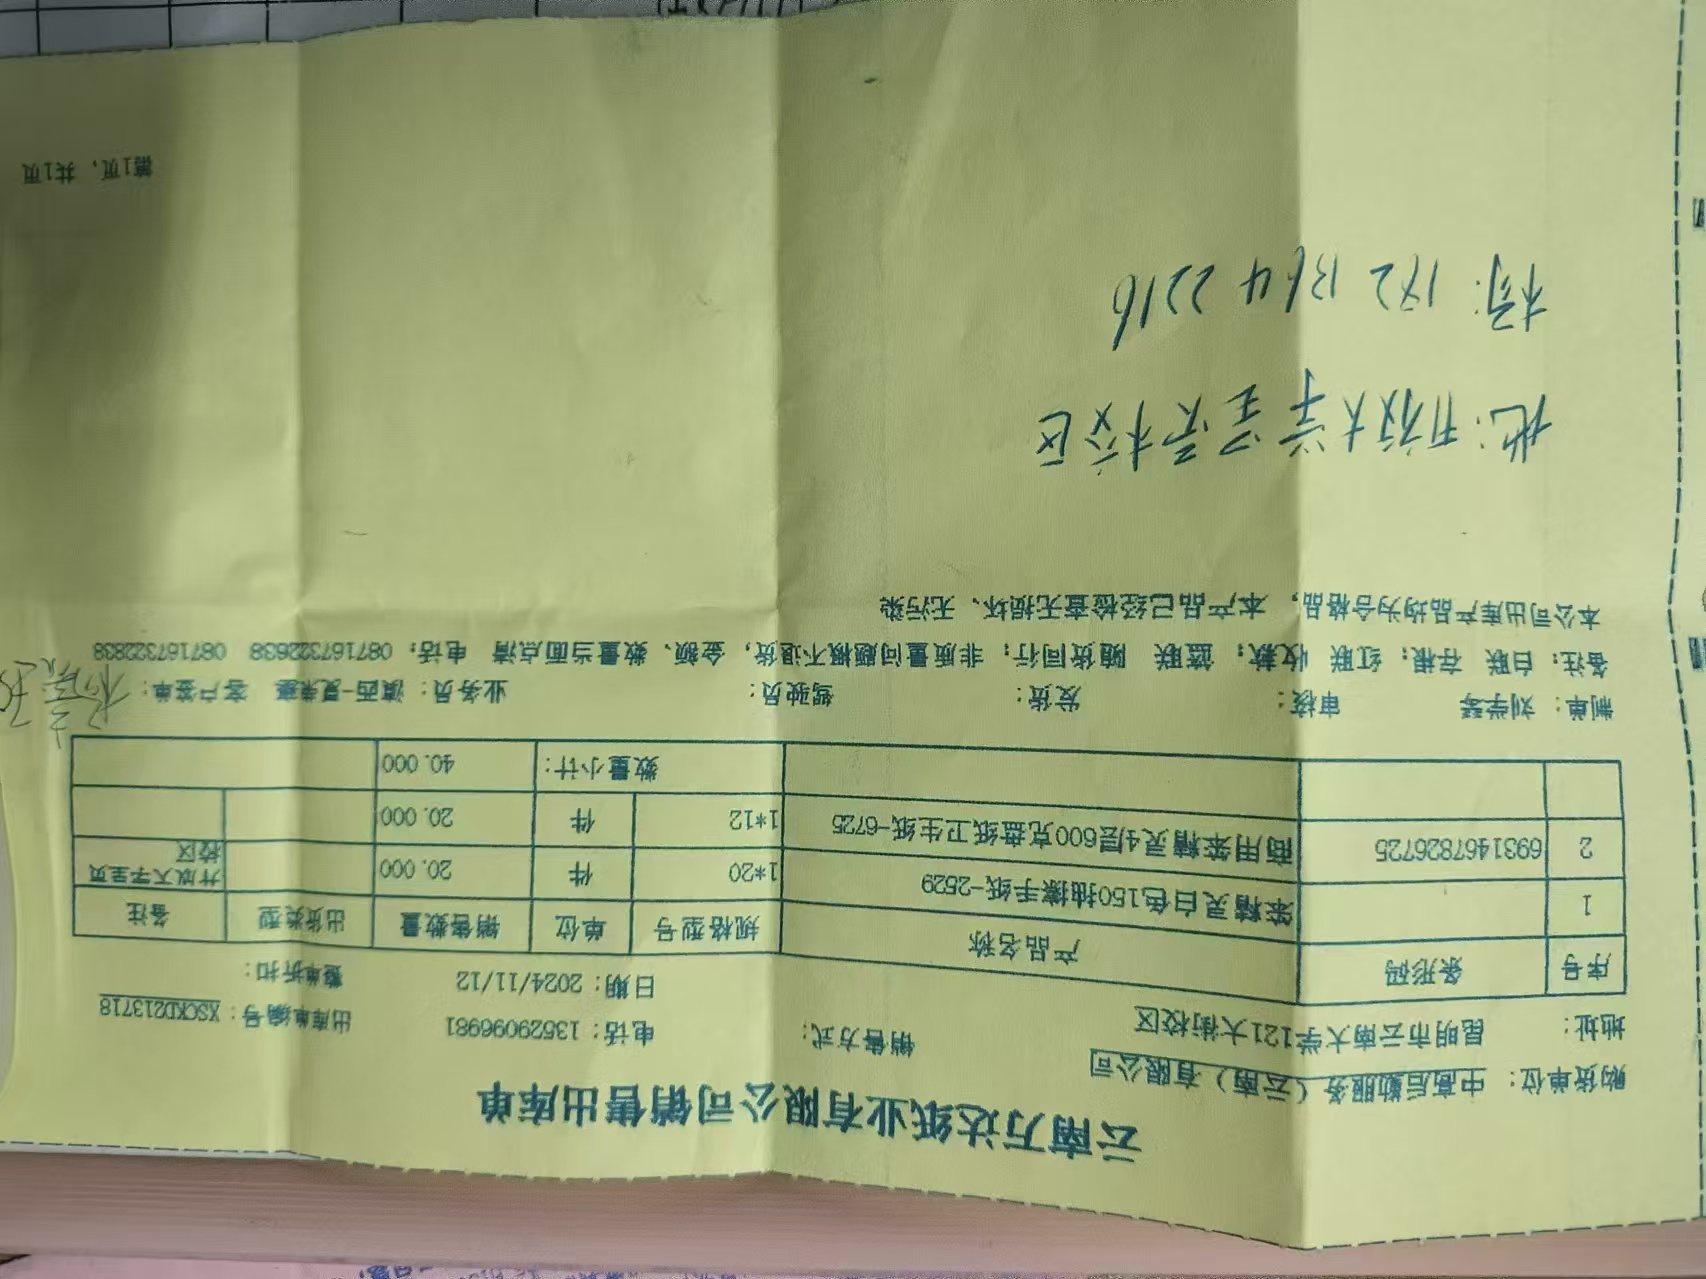 云南万达纸业有限公司销售出库单
购货单位: 中高后勤服务（云南）有限公司
地址: 昆明市云南大学121大街校区 销售方式: 电话: 13529096981 出库单编号: XSCKD213718
日期: 2024/11/12 整单折扣:
序号 条形码 产品名称 规格型号 单位 销售数量 出货类型 备注
1 笨精灵白色150抽擦手纸-2529 1*20 件 20.000 开放大学呈贡校区
2 6931467826725 商用笨精灵4层600克盘纸卫生纸-6725 1*12 件 20.000
数量小计: 40.000
制单: 刘学琴 审核: 发货: 驾驶员: 业务员: 滇西-夏荣 客户签单:
备注: 白联 存根; 红联 收款; 蓝联 随货同行; 非质量问题概不退货, 金额、数量当面点清 电话: 087167322638 087167322838
本公司出库产品均为合格品, 本产品已经检查无损坏、无污染
地:开放大学呈贡校区
杨: 182 1364 2216
第1页, 共1页